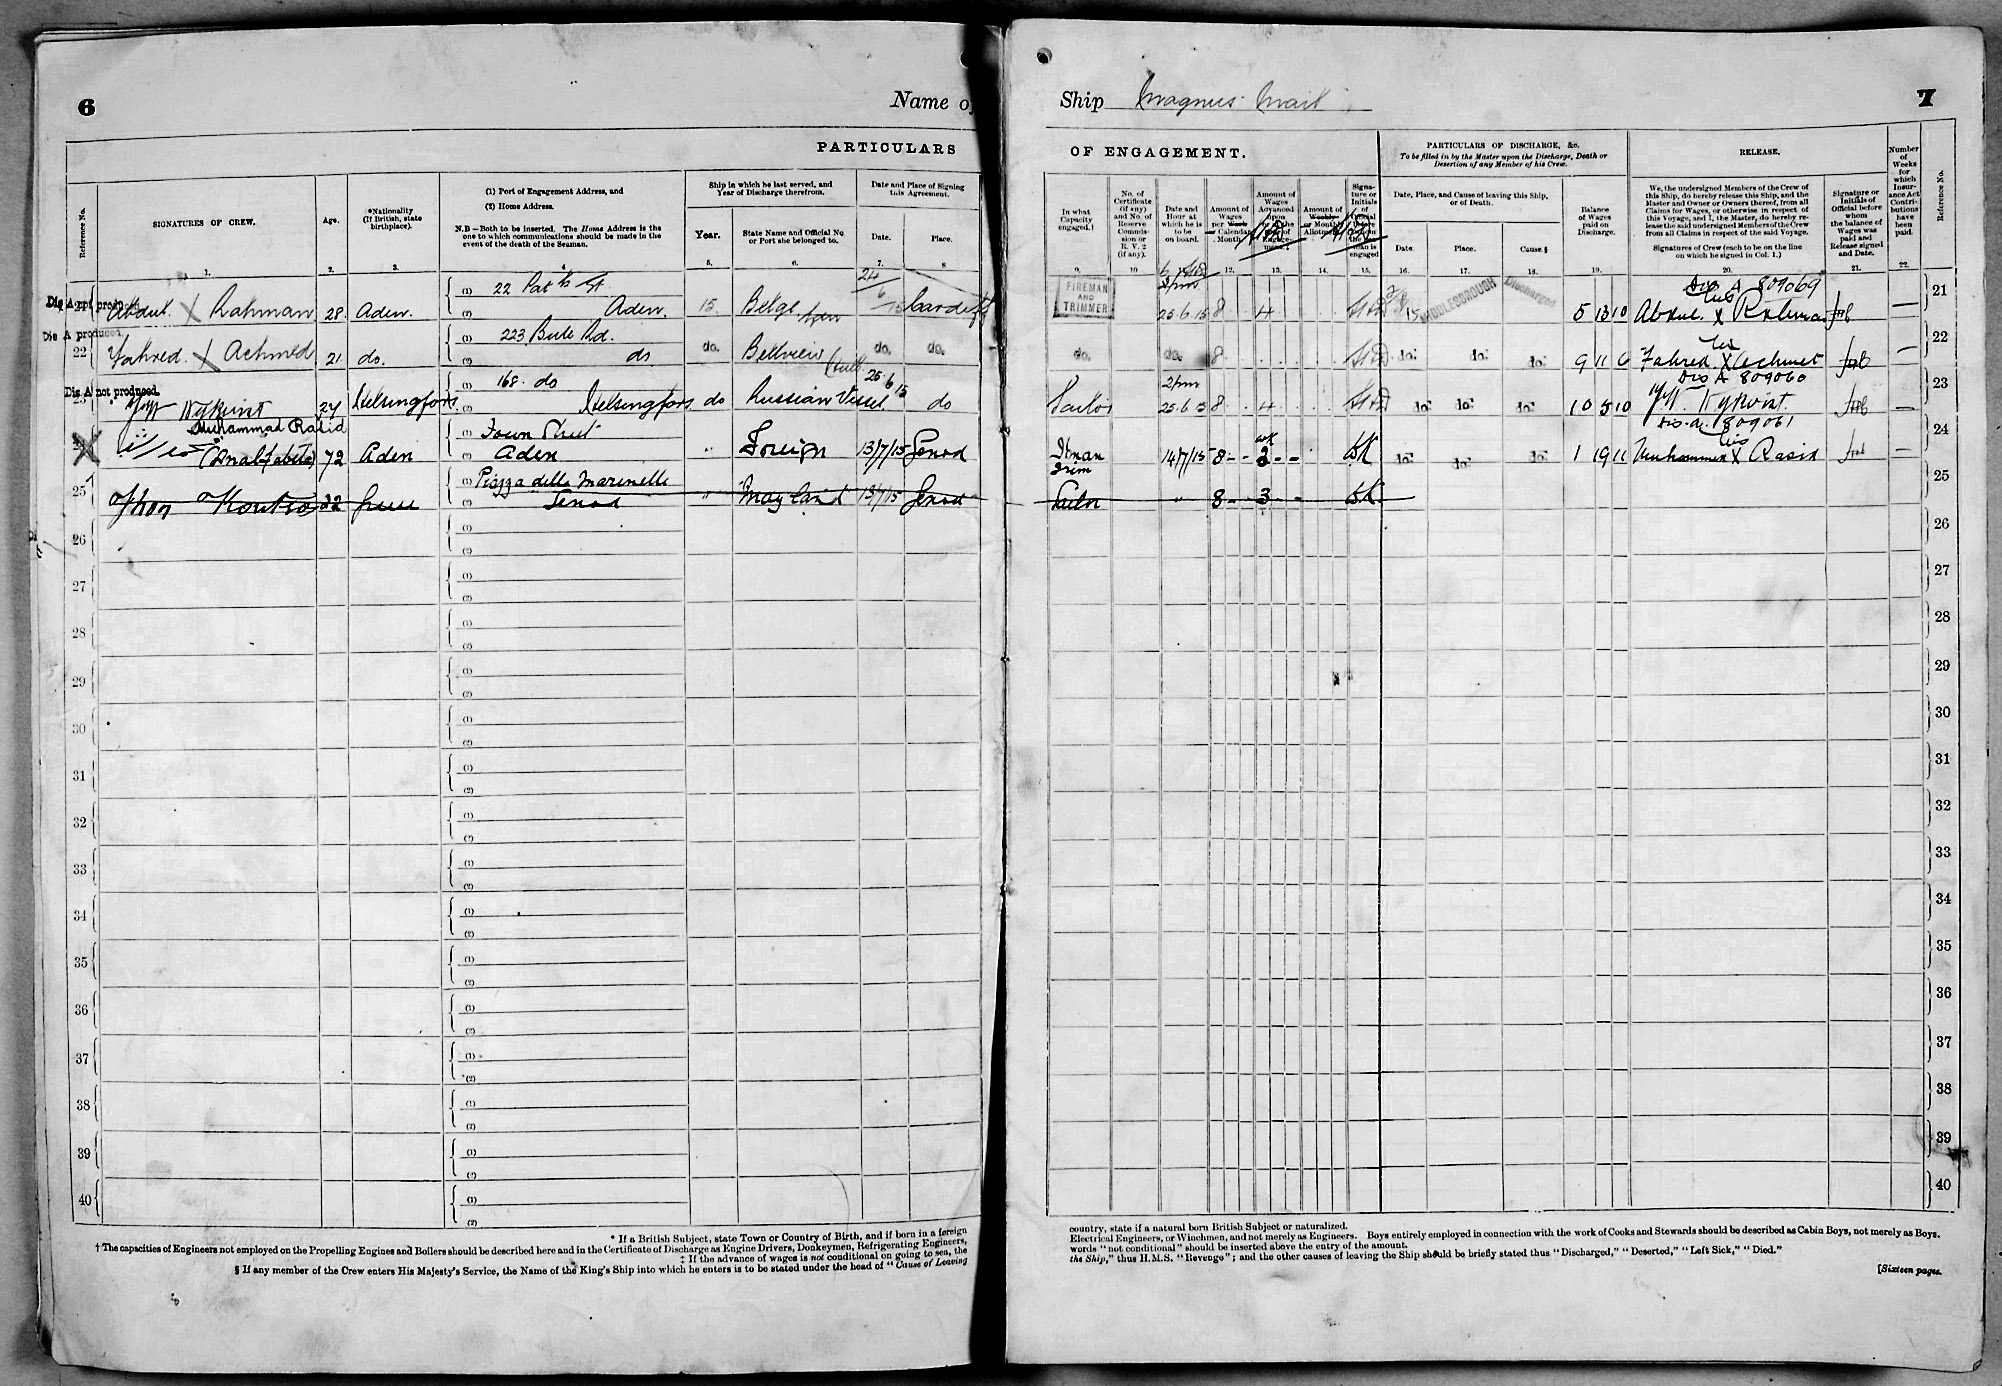 6
Name of
PARTICULARS
Reference No.
SIGNATURES OF CREW.
Age.
*Nationality
(If British, state
birthplace).
(1) Port of Engagement Address, and
(2) Home Address.
N.B—Both to be inserted. The Home Address is the
one to which communications should be made in the
event of the death of the Seaman.
Ship in which he last served, and
Year of Discharge therefrom.
Year.
State Name and Official No.
or Port she belonged to.
Date and Place of Signing
this Agreement.
Date.
Place.
1. 2. 3. 4 5. 6. 7. 8
Dis A not produced
Abdul X Rahman 28 Aden. (1) 22 St (2) Aden. 15. 24/6/15 Cardiff
Dis A produced.
22 Fahred X Achmed 21 do. (1) 223 Bute Rd. (2) do do. Bellview (Hull) do. do.
Dis A not produced.
27 Helsingfors. (1) 168 do (2) Helsingfors do Russian Vessel 25.6.15 do
Muhammad Rasid
(Analfabeta) 72 Aden (1) Town Street (2) Aden " Foreign 13/7/15 Genoa
25 32 Greece (1) Piazza delle Marinelle (2) Genoa " Mayland 13/7/15 Genoa
26 (1) (2)
27 (1) (2)
28 (1) (2)
29 (1) (2)
30 (1) (2)
31 (1) (2)
32 (1) (2)
33 (1) (2)
34 (1) (2)
35 (1) (2)
36 (1) (2)
37 (1) (2)
38 (1) (2)
39 (1) (2)
40 (1) (2)
* If a British Subject, state Town or Country of Birth, and if born in a foreign
† The capacities of Engineers not employed on the Propelling Engines and Boilers should be described here and in the Certificate of Discharge as Engine Drivers, Donkeymen, Refrigerating Engineers,
‡ If the advance of wages is not conditional on going to sea, the
§ If any member of the Crew enters His Majesty's Service, the Name of the King's Ship into which he enters is to be stated under the head of "Cause of Leaving
Ship Magnus Mail
7
OF ENGAGEMENT.
PARTICULARS OF DISCHARGE, &c.
To be filled in by the Master upon the Discharge, Death or
Desertion of any Member of his Crew.
RELEASE.
Number
of
Weeks
for
which
Insur-
ance Act
Contri-
butions
have
been
paid.
Reference No.
In what
Capacity
engaged.†
No. of
Certificate
(if any)
and No. of
Reserve
Commis-
sion or
R. V. 2
(if any).
Date and
Hour at
which he is
to be
on board.
Amount of
Wages
per Week
Calendar
Month.
Amount of
Wages
Advanced
upon
Amount of
Weekly
or Monthly
Allotment.
Signa-
ture or
Initials
of
engaged
Date, Place, and Cause of leaving this Ship,
or of Death.
Date.
Place.
Cause.§
Balance
of Wages
paid on
Discharge.
We, the undersigned Members of the Crew of
this Ship, do hereby release this Ship, and the
Master and Owner or Owners thereof, from all
Claims for Wages, or otherwise in respect of
this Voyage, and I, the Master, do hereby re-
lease the said undersigned Members of the Crew
from all Claims in respect of the said Voyage.
Signatures of Crew (each to be on the line
on which he signed in Col. 1.)
Signature or
Initials of
Official before
whom
the balance of
Wages was
paid and
Release signed
and Date.
9. 10 12. 13. 14. 15. 16. 17. 18. 19. 20. 21. 22.
FIREMAN
AND
TRIMMER
25.6.15 8 4 MIDDLESBROUGH Discharged 5 13 10
Dis A 809069
his
Abdul X Rahman — 21
do. do. 8 do. do. do. 9 11 6
his
Fahred X Achmet — 22
2pm
Sailor 25.6.15 8 4 do. do. do. 10 5 10
Dis A 809060
— 23
Dis. A. 809061
his
Fman
Trim 14/7/15 8 2 do. do. do. 1 19 11 Muhammed X Rasid — 24
Sailor " 8 3 25
26
27
28
29
30
31
32
33
34
35
36
37
38
39
40
country, state if a natural born British Subject or naturalized.
Electrical Engineers, or Winchmen, and not merely as Engineers. Boys entirely employed in connection with the work of Cooks and Stewards should be described as Cabin Boys, not merely as Boys.
words "not conditional" should be inserted above the entry of the amount.
the Ship," thus H.M.S. "Revenge"; and the other causes of leaving the Ship should be briefly stated thus "Discharged," "Deserted," "Left Sick," "Died."
[Sixteen pages.